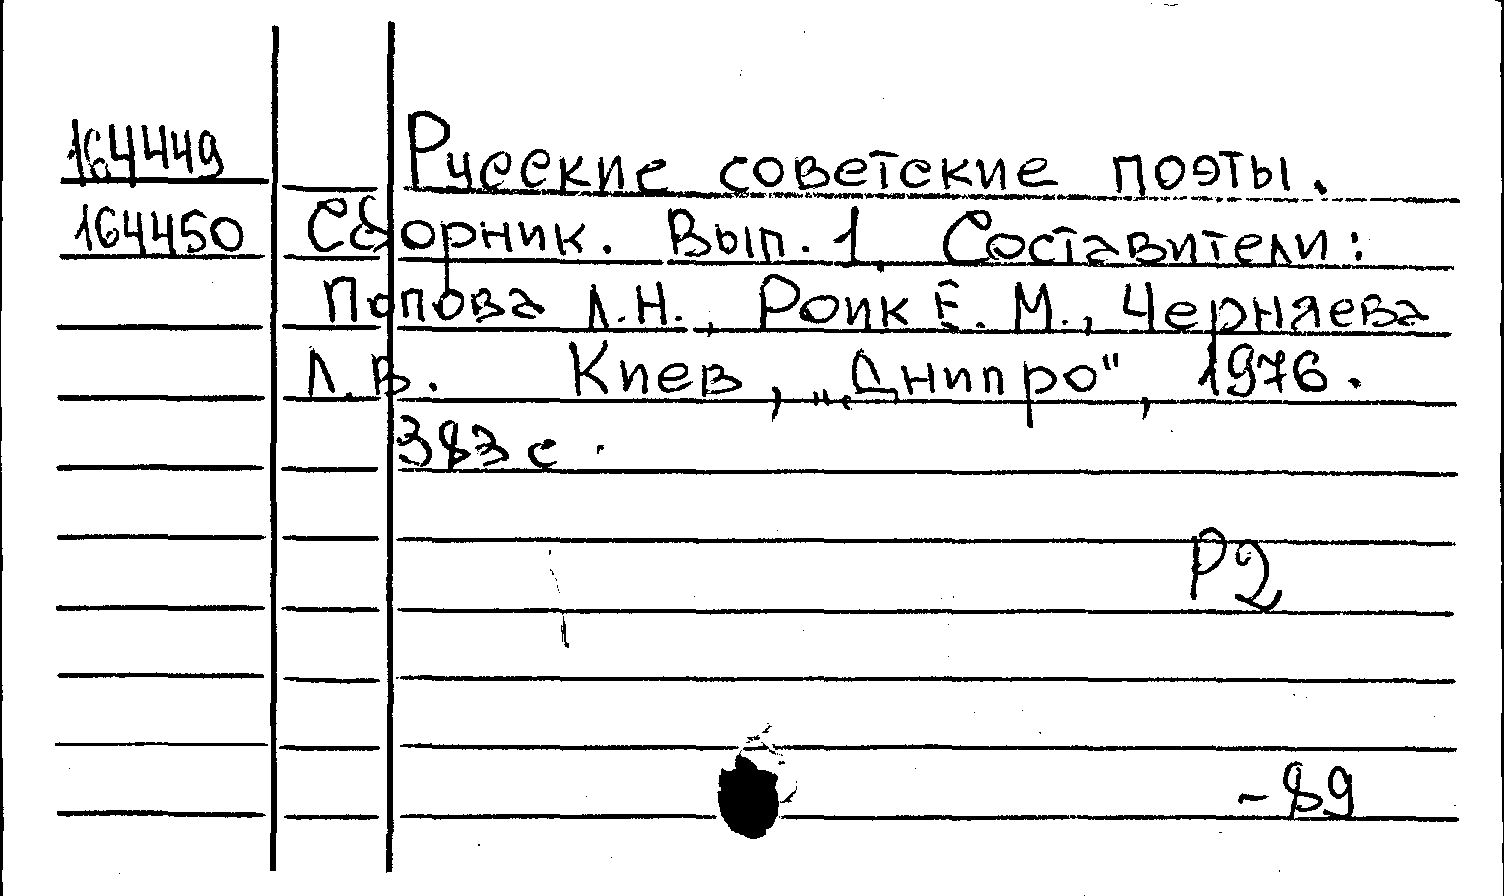 164449 Русские советские поэты.
164450 Сборник. Вып. 1. Составители:
Попова Л.Н., Роик Е. М., Черняева
Л.В. Киев, „Днипро", 1976.
383 с.
Р2
-89